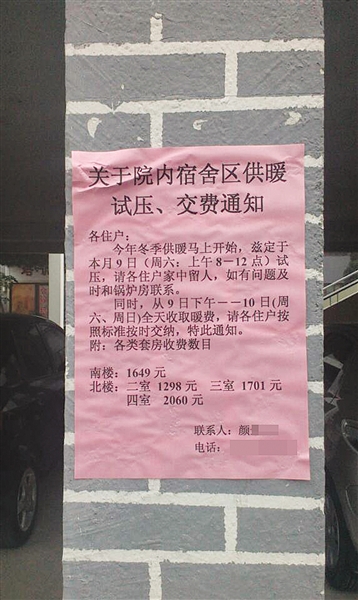 关于院内宿舍区供暖
试压、交费通知
各住户：
今年冬季供暖马上开始，兹定于
本月9日（周六：上午8－12点）试
压，请各住户家中留人，如有问题及
时和锅炉房联系。
同时，从9日下午－－10日(周
六、周日)全天收取暖费，请各住户按
照标准按时交纳，特此通知。
附：各类套房收费数目
南楼：1649元
北楼：二室 1298元 三室 1701元
四室 2060元
联系人：颜
电话：